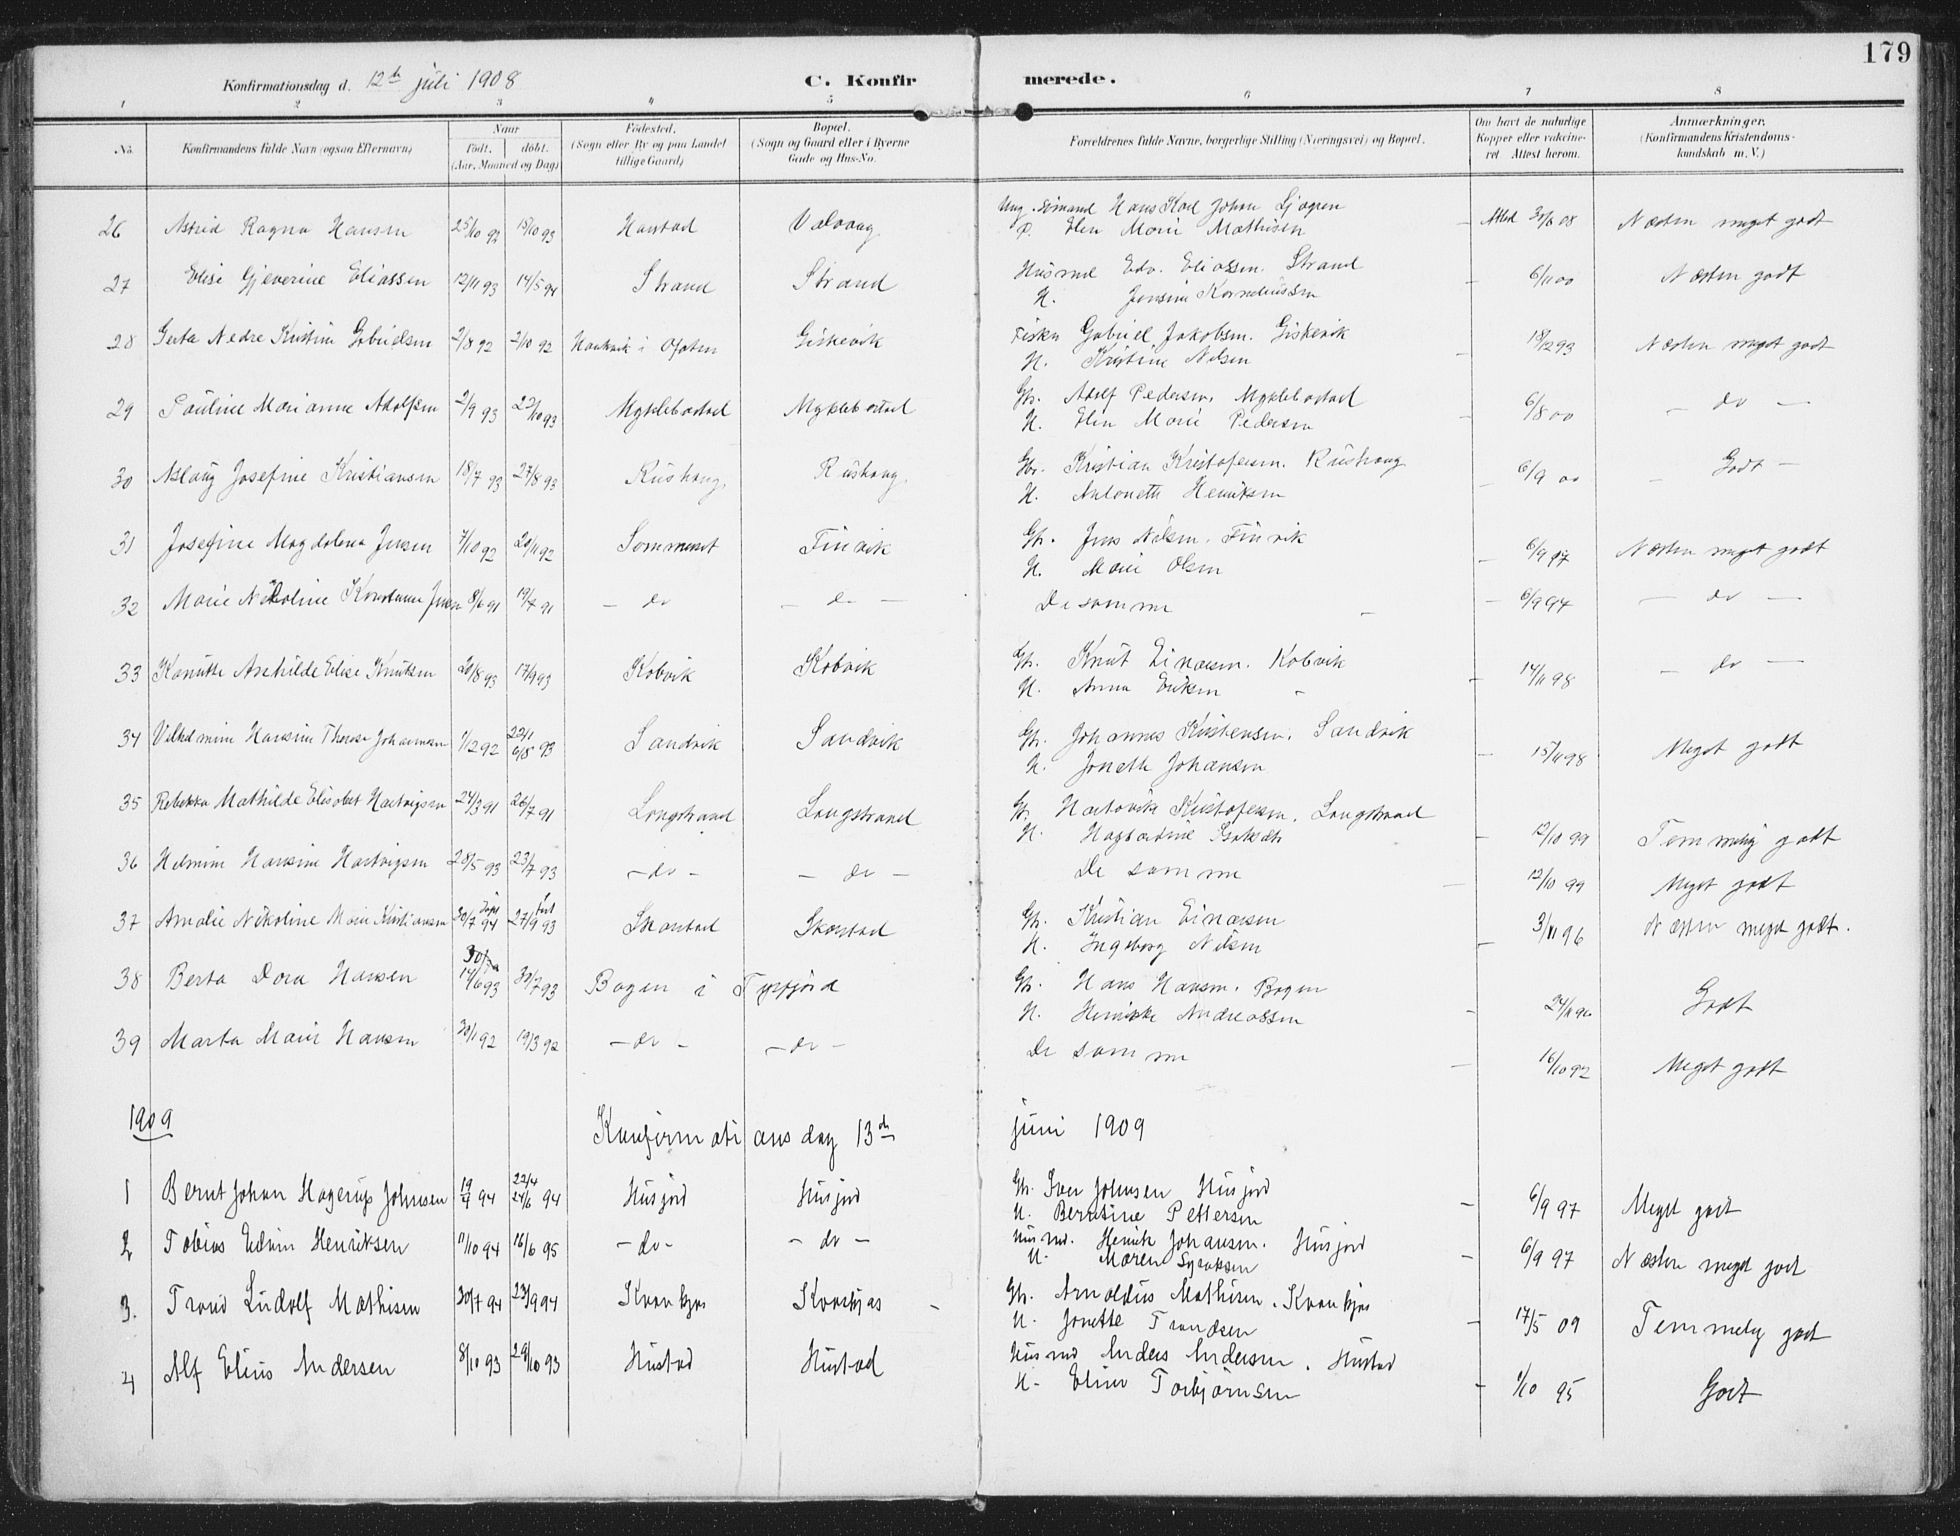 179
Konfirmationsdag d. 12te juli 1908 C. Konfirmerede.
1 2 3 4 5 6 7 8
No. Konfirmandens fulde Navn (ogsaa Efternavn) Naar Født. døbt. (Aar, Maaned og Dag) Fødested. (Sogn eller By og paa Landet tillige Gaard) Bopæl. (Sogn og Gaard eller i Byerne Gade og Hus-No. Forældrenes fulde Navne, borgerlige Stilling (Næringsvei) og Bopæl. Om havt de naturlige Kopper eller vakcineret Attest herom. Anmærkninger. (Konfirmandens Kristendomskundskab m. V.)
26 Astrid Ragna Hansen 25/10 92 15/10 93 Ung. Hans Karl Johan
Elen Marie Mathisen Attest 30/6 08 Næsten meget godt
27 Elise Gjeverine Eliassen 12/11 93 14/5 94 Strand Strand Husmd Edv. Eliassen. Strand
H. Jensine Korneliussen 6/11 00 Næsten godt
28 Gerta Nedre Kristine Gabrielsen 2/8 92 2/10 92 i Ofoten Giskevik Fisker Gabriel Jakobsen. Giskevik
H. Kristine Nilsen 18/12 93 Næsten meget godt
29 Pauline Marianne Adolfsen 2/9 93 23/10 93 Myklebostad Myklebostad Gbr. Adolf Pedersen. Myklebostad
H. Elen Marie Pedersen 6/8 00 - do -
30 Aslaug Josefine Kristiansen 18/7 93 27/8 93 Rushaug Rushaug Gbr. Kristian Kristofersen. Rushaug
H. Antonette Henriksen 6/9 00 Godt -
31 Josefine Magdalena Jensen 7/10 92 20/11 92 Sommerset Finvik Gbr. Jens Nilsen. Finvik
H. Marie Olsen 6/9 97 Næsten meget godt
32 Marie Nikoline Konstanse Jensen 8/6 91 19/7 91 - do - do - De samme 6/9 97 - do -
33 Kanutte Arehilde Elise Knutsen 20/8 93 17/9 93 Kobvik Kobvik Gbr. Knut Einarsen. Kobvik
H. Anna Eriksen 14/11 98 - do -
34 Vilhelmine Hansine Therese Johannesen 1/12 92 22/1 6/8 93 Sandvik Sandvik Gbr. Johannes Kristensen. Sandvik
H. Jonette Johansen 15/11 98 Meget godt
35 Rebekka Mathilde Elisabet Hartvigsen 24/3 91 26/7 91 Langstrand Langstrand G. Hartvik Kristofersen. Langstrand
H. Hagbardine Isaksdtr 12/10 99 Temmelig godt
36 Helmine Hansine Hartvigsen 28/5 93 23/7 93 - do - - do - De samme 12/10 99 Meget godt
37 Amalie Nikoline Marie Kristiansen 30/7 94 27/9 93 Skarstad Skarstad Gbr. Kristian Einarsen
H. Ingeborg Nilsen 3/11 96 Næsten meget godt.
38 Berta Dora Hansen 14/6 93 30/7 93 Bogen i Tysfjord Gbr. Hans Hansen. Bogen
H. Henrikke Andreassen 24/11 96 Godt
39 Marta Marie Hansen 30/1 92 19/3 92 - do - - do - De samme 16/10 92 Meget godt
1909 Konfirmationsdag 13de juni 1909
1 Bernt Johan Hagerup Johnsen 19/4 94 22/4 24/6 94 Husjord Husjord Gbr. Iver Johnsen Husjord
H. Berntine Pettersen 6/9 97 Meget godt
2 Tobias Edvin Henriksen 11/10 94 16/6 95 - do - - do - Husmd. Henrik Johansen. Husjord
H. Maren Syvaksen 6/9 97 Næsten meget godt
3. Trond Ludolf Mathisen 30/7 94 23/9 94 Kvankjos Kvankjos Gbr. Arnoldus Mathisen. Kvankjos
H. Jonette Trondsen 17/5 09 Temmelig godt
4 Alf Elius Andersen 8/10 93 29/10 93 Hustad Hustad Husmd Anders Andersen. Hustad
H. Torbjørnsen 1/10 95 Godt